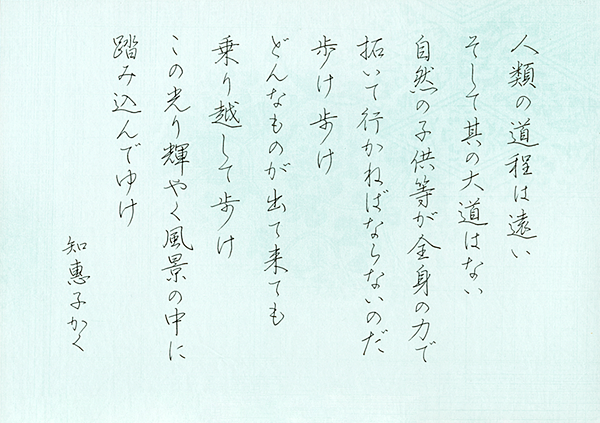 人類の道程は遠い
そして其の大道はない
自然の子供等が全身の力で
拓いて行かねばならないのだ
歩け歩け
どんなものが出て来ても
乗り越して歩け
この光り輝やく風景の中に
踏み込んでゆけ
知惠子かく